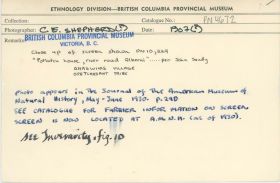 ETHNOLOGY DIVISION—BRITISH COLUMBIA PROVINCIAL MUSEUM
Photographer: C.E. SHEPHERD(?) 1907(?) Catalogue No.: PN 4672
Remarks: BRITISH COLUMBIA PROVINCIAL MUSEUM
VICTORIA, B. C.
Close up of screen shown PN 10,229
"Potlatch house, river road Alberni"
VILLAGE
TRIBE
Photo appears in the Journal of the American Museum of
Natural History, May-June 1930. p.
SEE CATALOGUE FOR FURTHER INFORMATION ON SCREEN
SCREEN IS NOW LOCATED AT A.M.N.H. (AS OF 1930).
See Inverarity, fig. 10